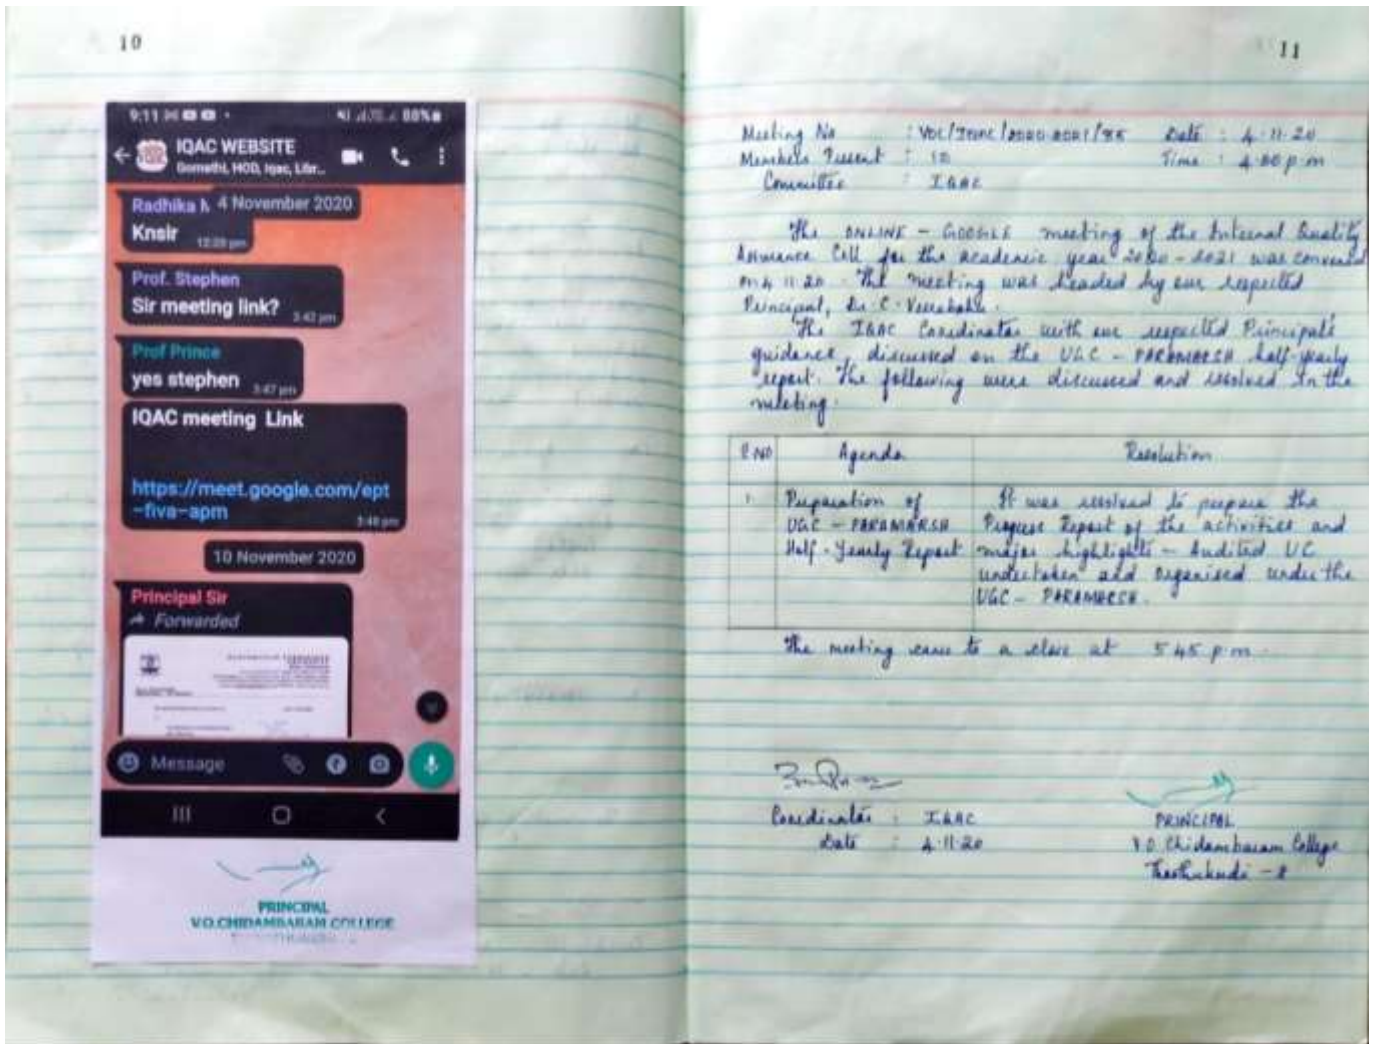 10
9:11
88%
IQAC WEBSITE
Gomathi, HOD, Iqac, Libr...
4 November 2020
Radhika
Knsir
12:28 pm
Prof. Stephen
Sir meeting link?
3:43 pm
Prof Prince
yes stephen
3:47 pm
IQAC meeting Link
https://meet.google.com/ept
-fiva-apm
3:48 pm
10 November 2020
Principal Sir
Forwarded
Message
PRINCIPAL
V.O.CHIDAMBARAM COLLEGE
11
Meeting No : Date : 4.11.20
Members Present : Time : 4.00 p.m
Committee : IQAC
The ONLINE - GOOGLE meeting of the Internal Quality
Assurance Cell for the academic year 2020-2021 was convened
on 4.11.20. The meeting was headed by our respected
Principal, Dr. C. Veerabahu.
The IQAC Coordinator with our respected Principal's
guidance, discussed on the UGC - PARAMARSH half-yearly
report. The following were discussed and resolved in the
meeting.
S.NO Agenda Resolution
1. Preparation of It was resolved to prepare the
UGC - PARAMARSH Progress Report of the activities and
Half-Yearly Report major highlights - Audited UC
undertaken and organised under the
UGC - PARAMARSH.
The meeting came to a close at 5.45 p.m.
Coordinator : IQAC
Date : 4.11.20
PRINCIPAL
V.O. Chidambaram College
Thoothukudi - 8